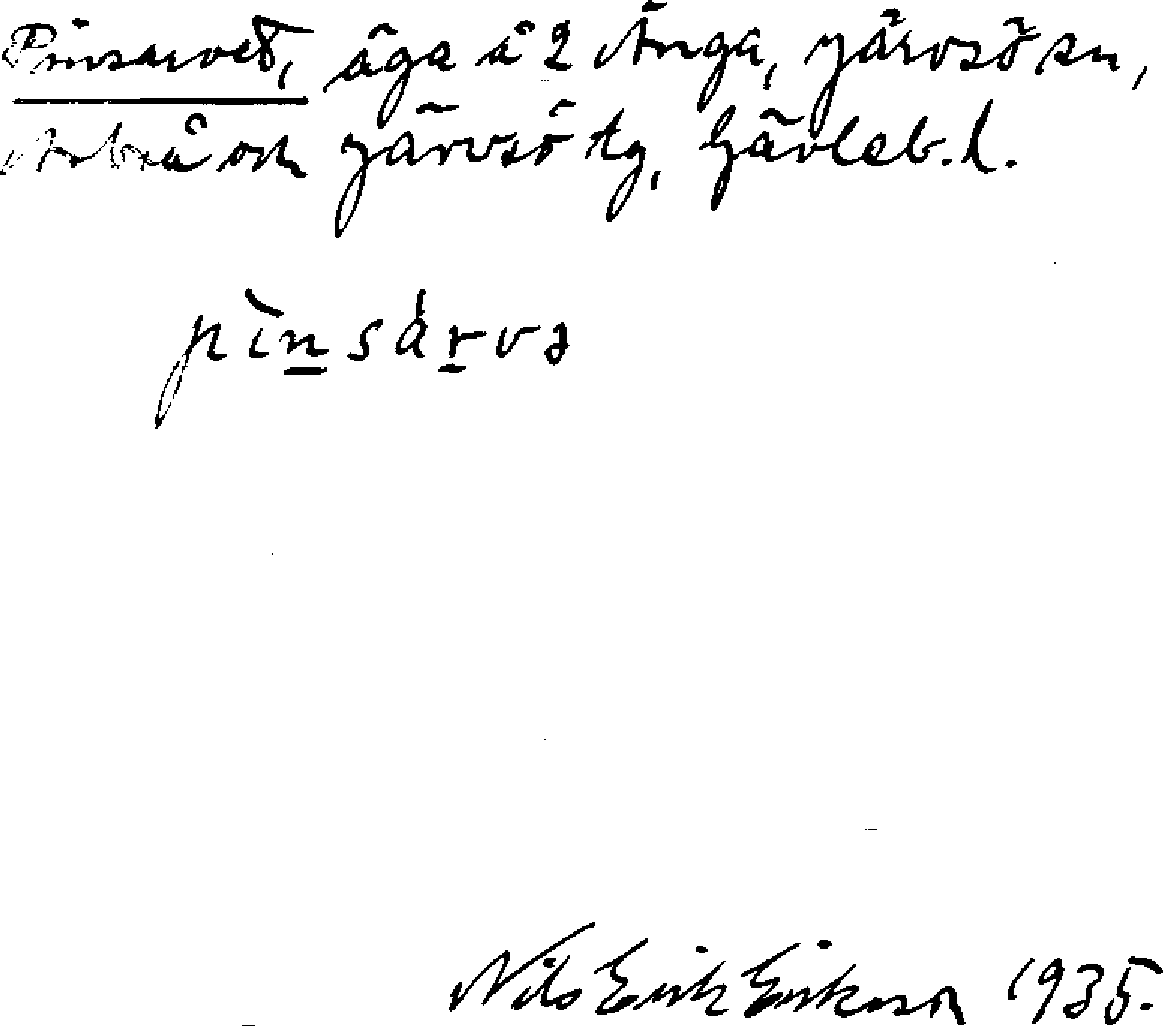 Pinsarvet, äga å 2 Änga, Järvsö sn,
Arbrå och Järvsö tg, Gävleb. l.
pìn̲sár̲və
Nils Erik Erikson 1935.